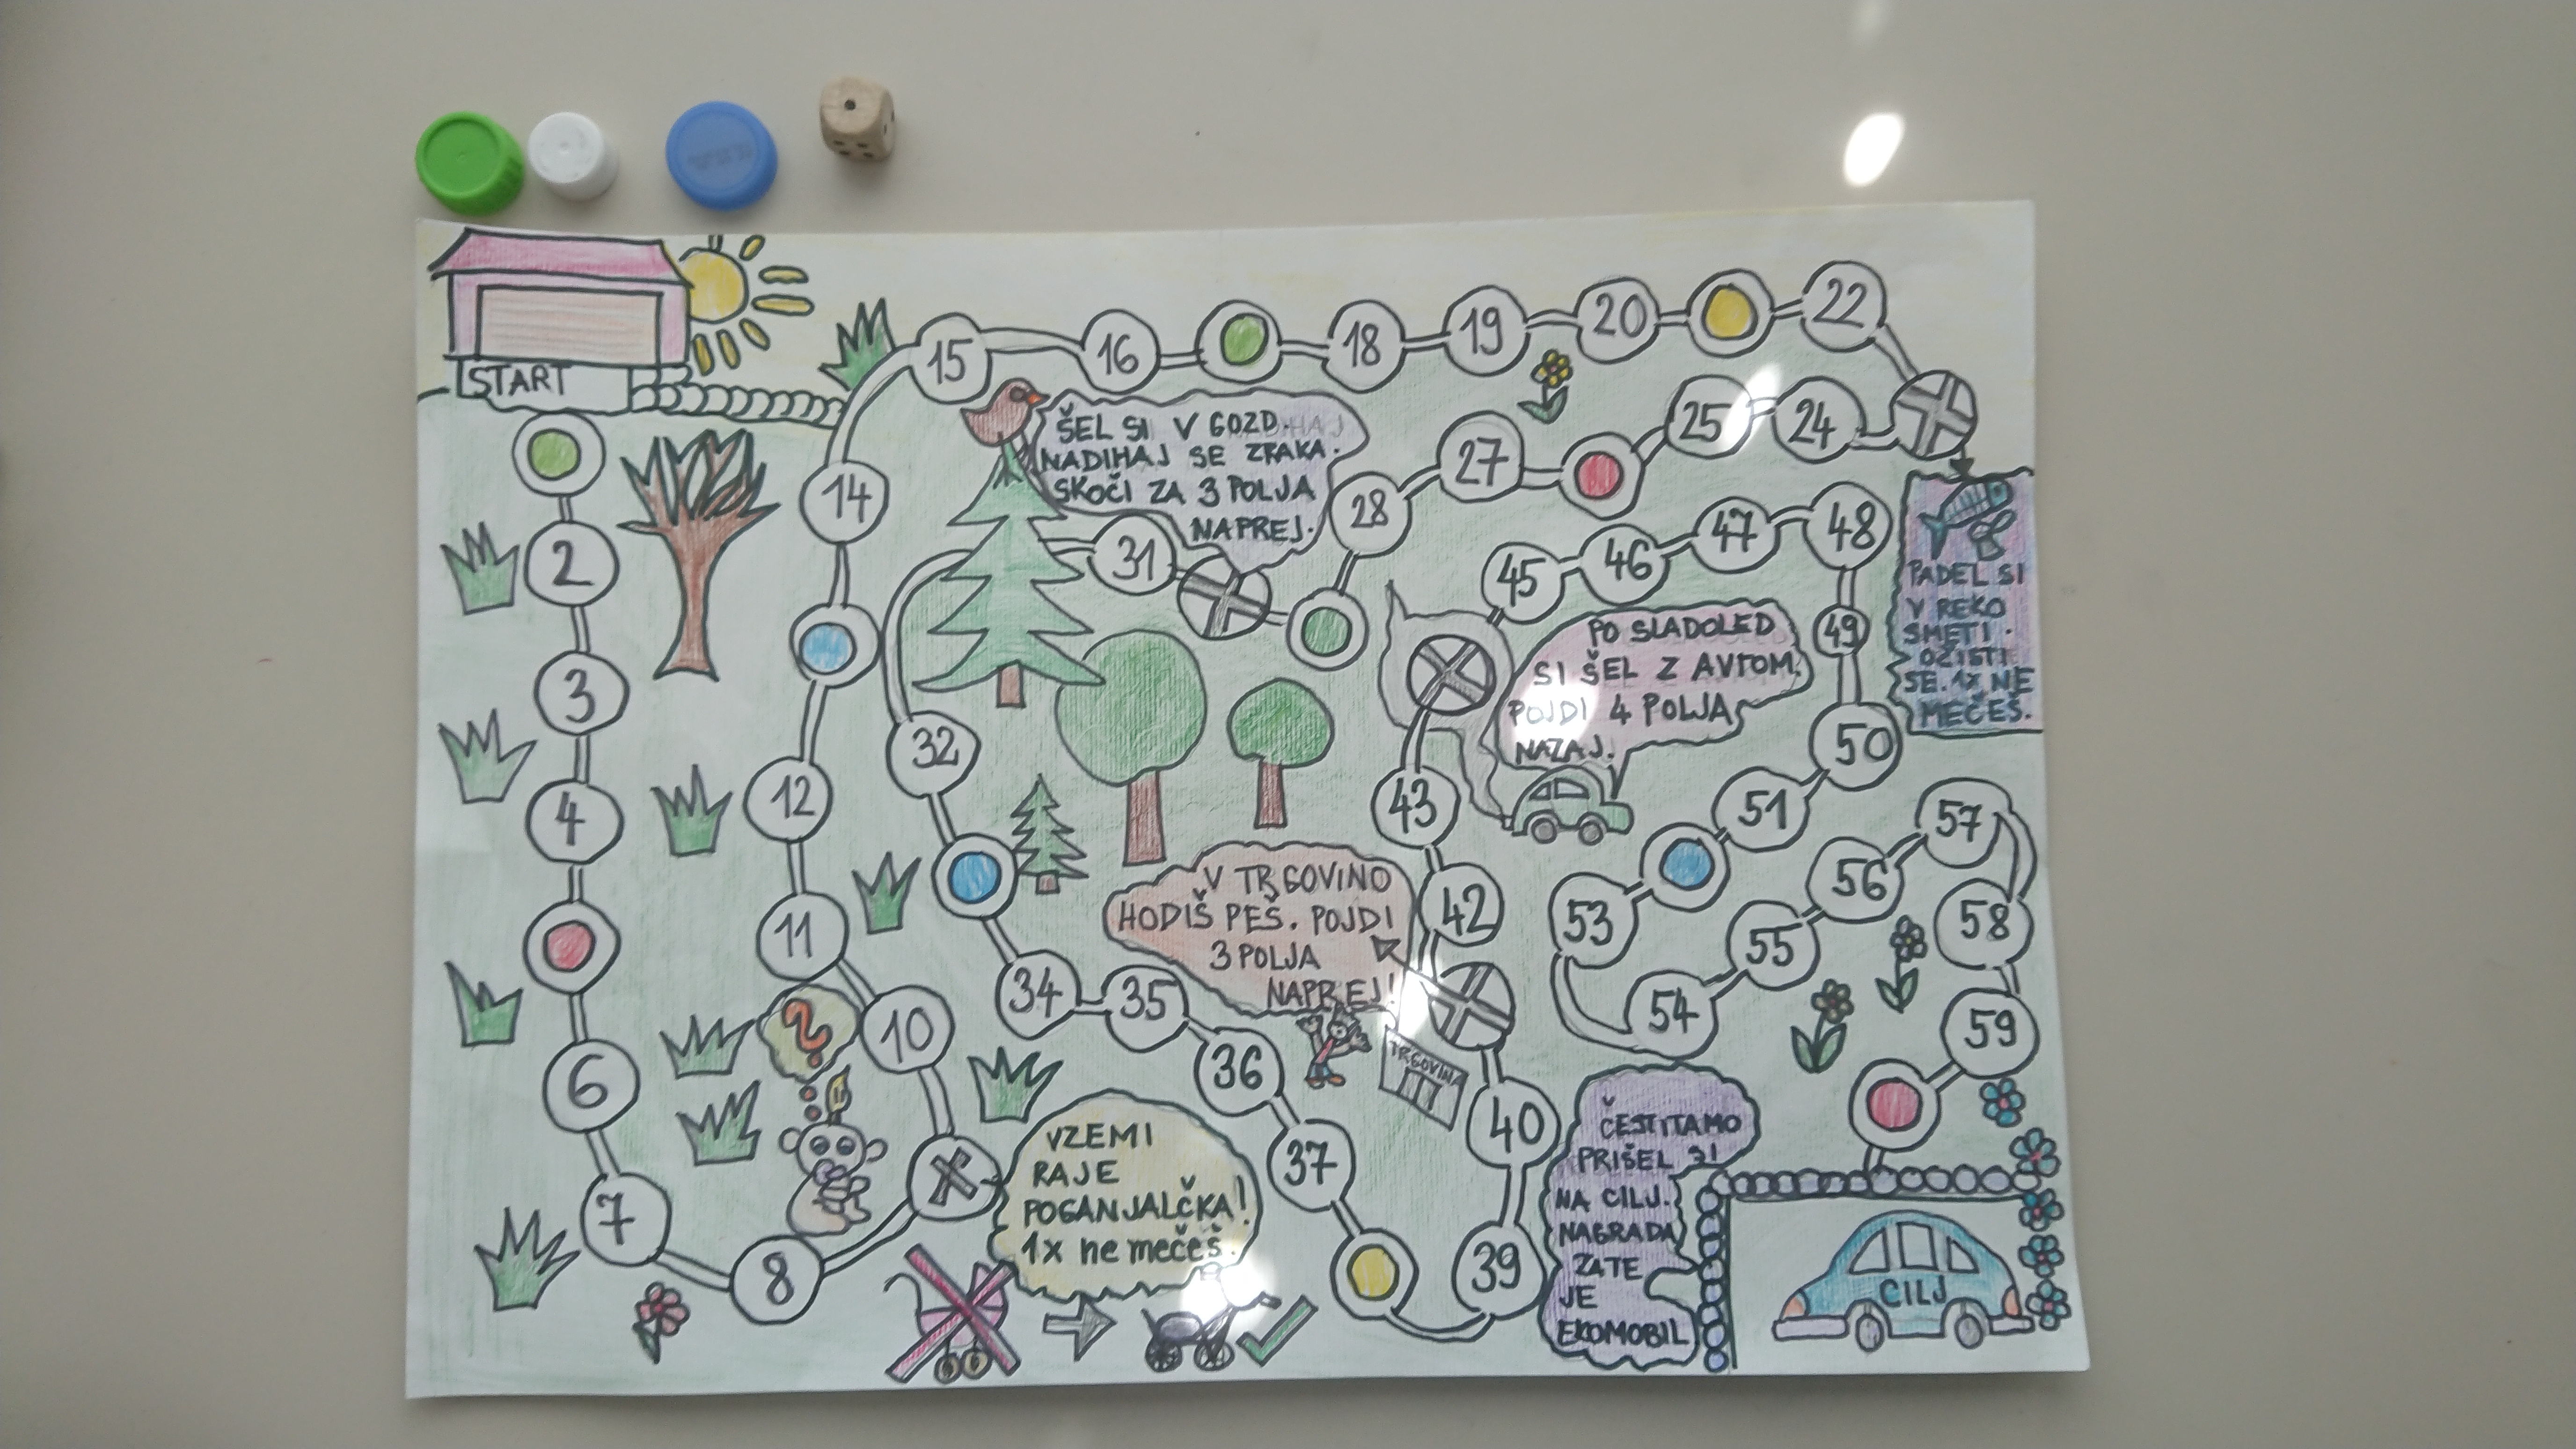 START
2
3
4
6
7
8
10
11
12
14
15
16
18
19
20
22
24
25
27
28
31
32
34
35
36
37
39
40
42
43
45
46
47
48
49
50
51
53
54
55
56
57
58
59
ŠEL SI V GOZD.
NADIHAJ SE ZRAKA.
SKOČI ZA 3 POLJA
NAPREJ.
PADEL SI
V REKO
SMETI.
OČISTI
SE. 1X NE
MEČEŠ.
PO SLADOLED
SI ŠEL Z AVTOM.
POJDI 4 POLJA
NAZAJ.
V TRGOVINO
HODIŠ PEŠ. POJDI
3 POLJA
NAPREJ!
TRGOVINA
?
VZEMI
RAJE
POGANJALČKA!
1x ne mečeš.
ČESTITAMO
PRIŠEL SI
NA CILJ.
NAGRADA
ZATE
JE
EKOMOBIL
CILJ